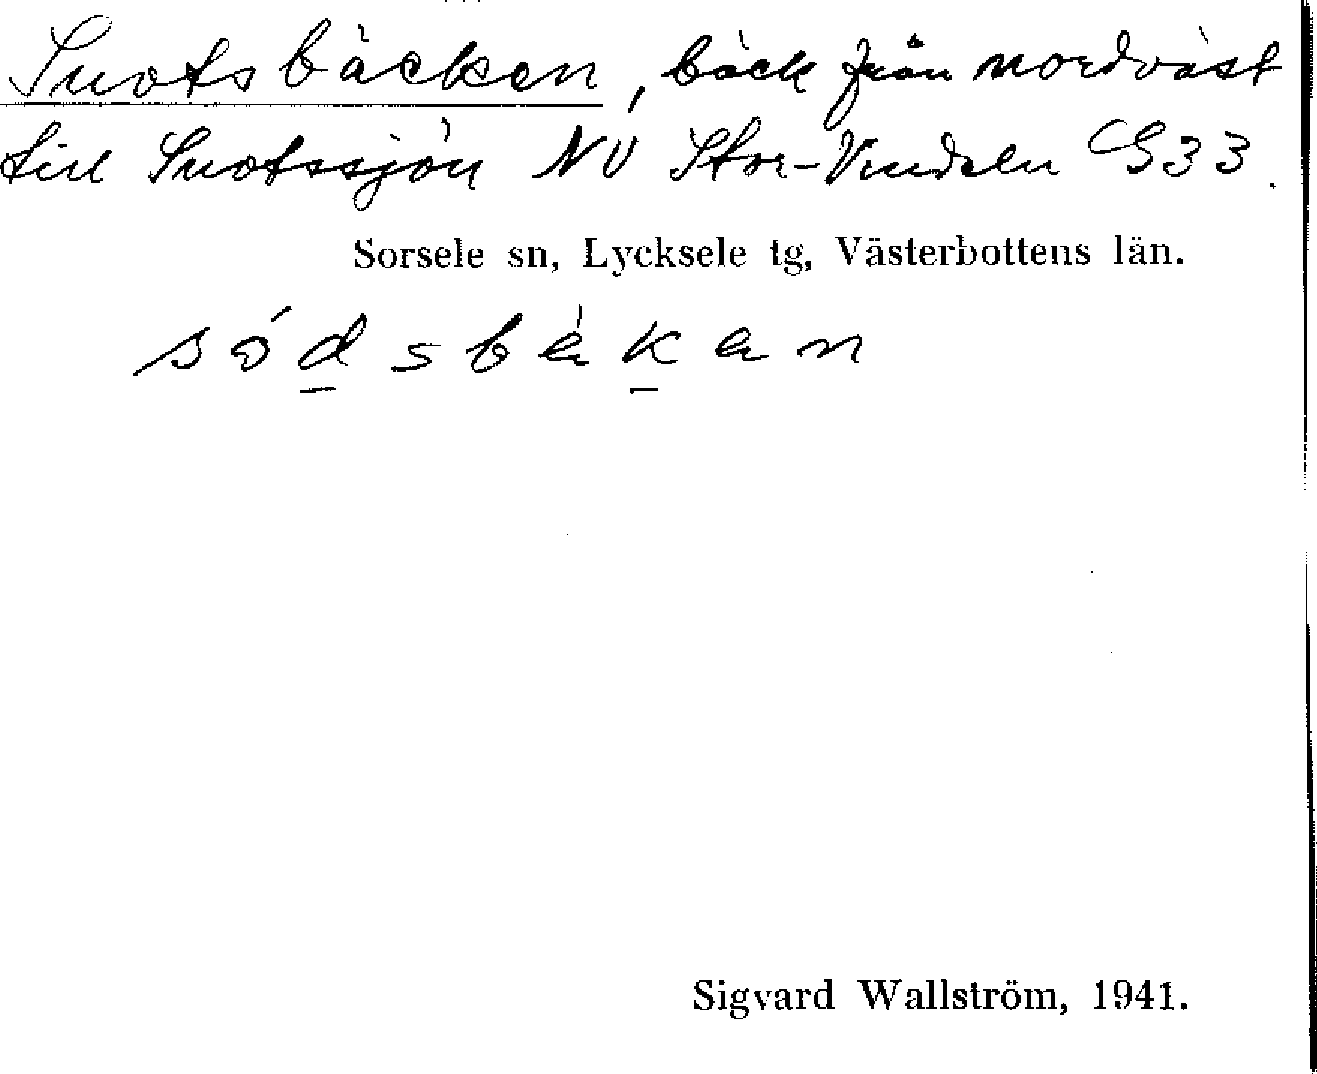 Suotsbäcken, bäck från nordväst
till Suotssjön NV Stor-Vindeln G33.
Sorsele sn, Lycksele tg, Västerbottens län.
södsbäkan
Sigvard Wallström, 1941.